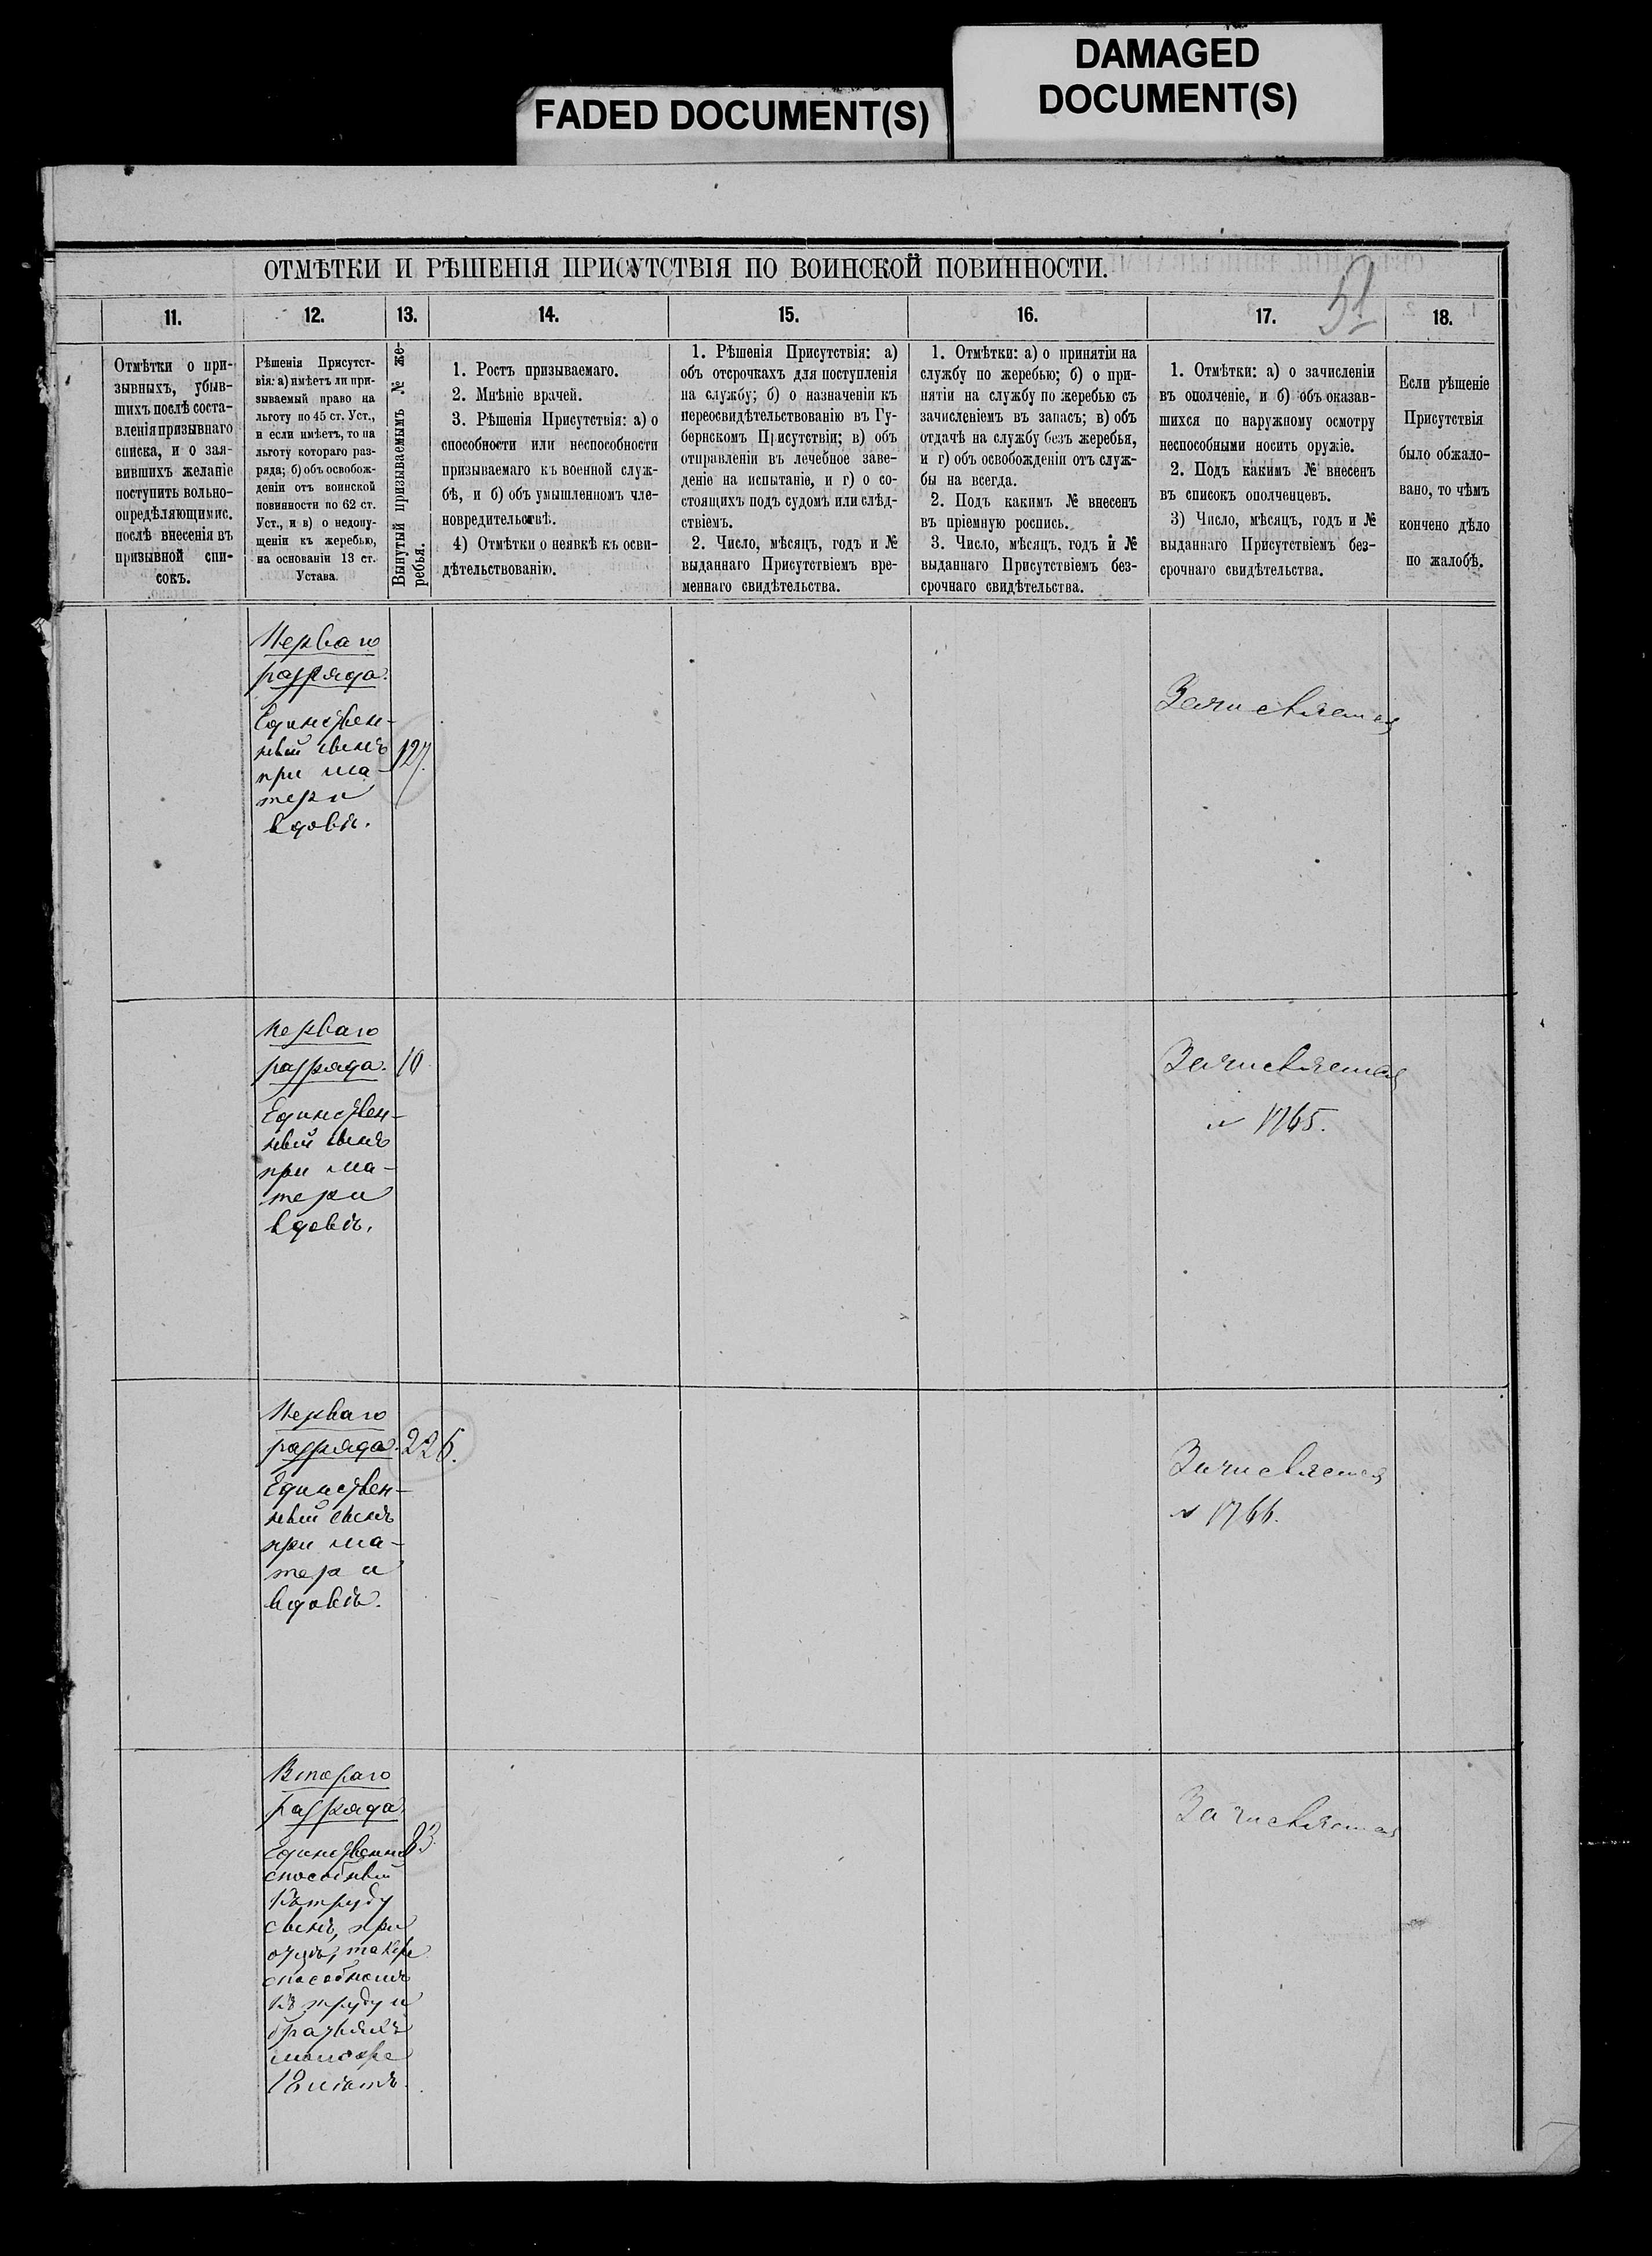 FADED DOCUMENT(S)
DAMAGED
DOCUMENT(S)
ОТМѢТКИ И РѢШЕНІЯ ПРИСУТСТВІЯ ПО ВОИНСКОЙ ПОВИННОСТИ.
51
11.
12.
13.
14.
15.
16.
17.
18.
Отмѣтки о при-
зывныхъ, убыв-
шихъ послѣ соста-
вленія призывнаго
списка, и о зая-
вившихъ желаніе
поступить вольно-
опредѣляющимис.
послѣ внесенія въ
призывной спи-
сокъ.
Рѣшенія Присутст-
вія: а) имѣетъ ли при-
зываемый право на
льготу по 45 ст. Уст.,
и если имѣетъ, то на
льготу котораго раз-
ряда; б) объ освобож-
деніи отъ воинской
повинности по 62 ст.
Уст., и в) о недопу-
щеніи къ жеребью,
на основаніи 13 ст.
Устава.
Вынутый призываемымъ № же-
ребья.
1. Ростъ призываемаго.
2. Мнѣніе врачей.
3. Рѣшенія Присутствія: а) о
способности или неспособности
призываемаго къ военной служ-
бѣ, и б) объ умышленномъ чле-
новредительствѣ.
4) Отмѣтки о неявкѣ къ осви-
дѣтельствованію.
1. Рѣшенія Присутствія: а)
объ отсрочкахъ для поступленія
на службу; б) о назначеніи къ
переосвидѣтельствованію въ Гу-
бернскомъ Присутствіи; в) объ
отправленіи въ лечебное заве-
деніе на испытаніе, и г) о со-
стоящихъ подъ судомъ или слѣд-
ствіемъ.
2. Число, мѣсяцъ, годъ и №
выданнаго Присутствіемъ вре-
меннаго свидѣтельства.
1. Отмѣтки: а) о принятіи на
службу по жеребью; б) о при-
нятіи на службу по жеребью съ
зачисленіемъ въ запасъ; в) объ
отдачѣ на службу безъ жеребья,
и г) объ освобожденіи отъ служ-
бы на всегда.
2. Подъ какимъ № внесенъ
въ пріемную роспись.
3. Число, мѣсяцъ, годъ и №
выданнаго Присутствіемъ без-
срочнаго свидѣтельства.
1. Отмѣтки: а) о зачисленіи
въ ополченіе, и б) объ оказав-
шихся по наружному осмотру
неспособными носить оружіе.
2. Подъ какимъ № внесенъ
въ списокъ ополченцевъ.
3) Число, мѣсяцъ, годъ и №
выданнаго Присутствіемъ без-
срочнаго свидѣтельства.
Если рѣшеніе
Присутствія
было обжало-
вано, то чѣмъ
кончено дѣло
по жалобѣ.
Перваго
разряда.
Единствен-
ный сынъ
при ма-
тери
вдовѣ.
127.
Зачисляется
Перваго
разряда.
Единствен-
ный сынъ
при ма-
тери
вдовѣ.
10
Зачисляется
№ 1765.
Перваго
разряда.
Единствен-
ный сынъ
при ма-
тери
вдовѣ.
226.
Зачисляется
№ 1766.
Втораго
разряда
Единственный
способный
къ труду
сынъ, при
отцѣ, также
способномъ
къ труду и
братьяхъ
моложе
18 лѣтъ.
83.
Зачисляется